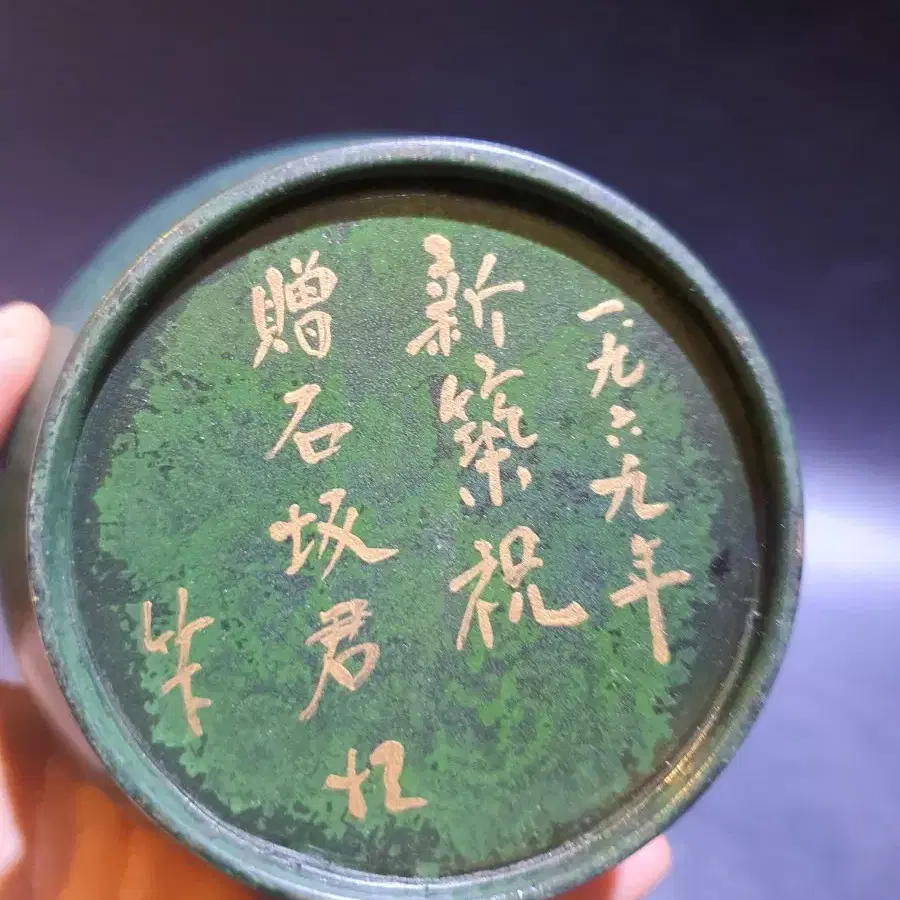 一九六九年
新築祝
贈石坂君